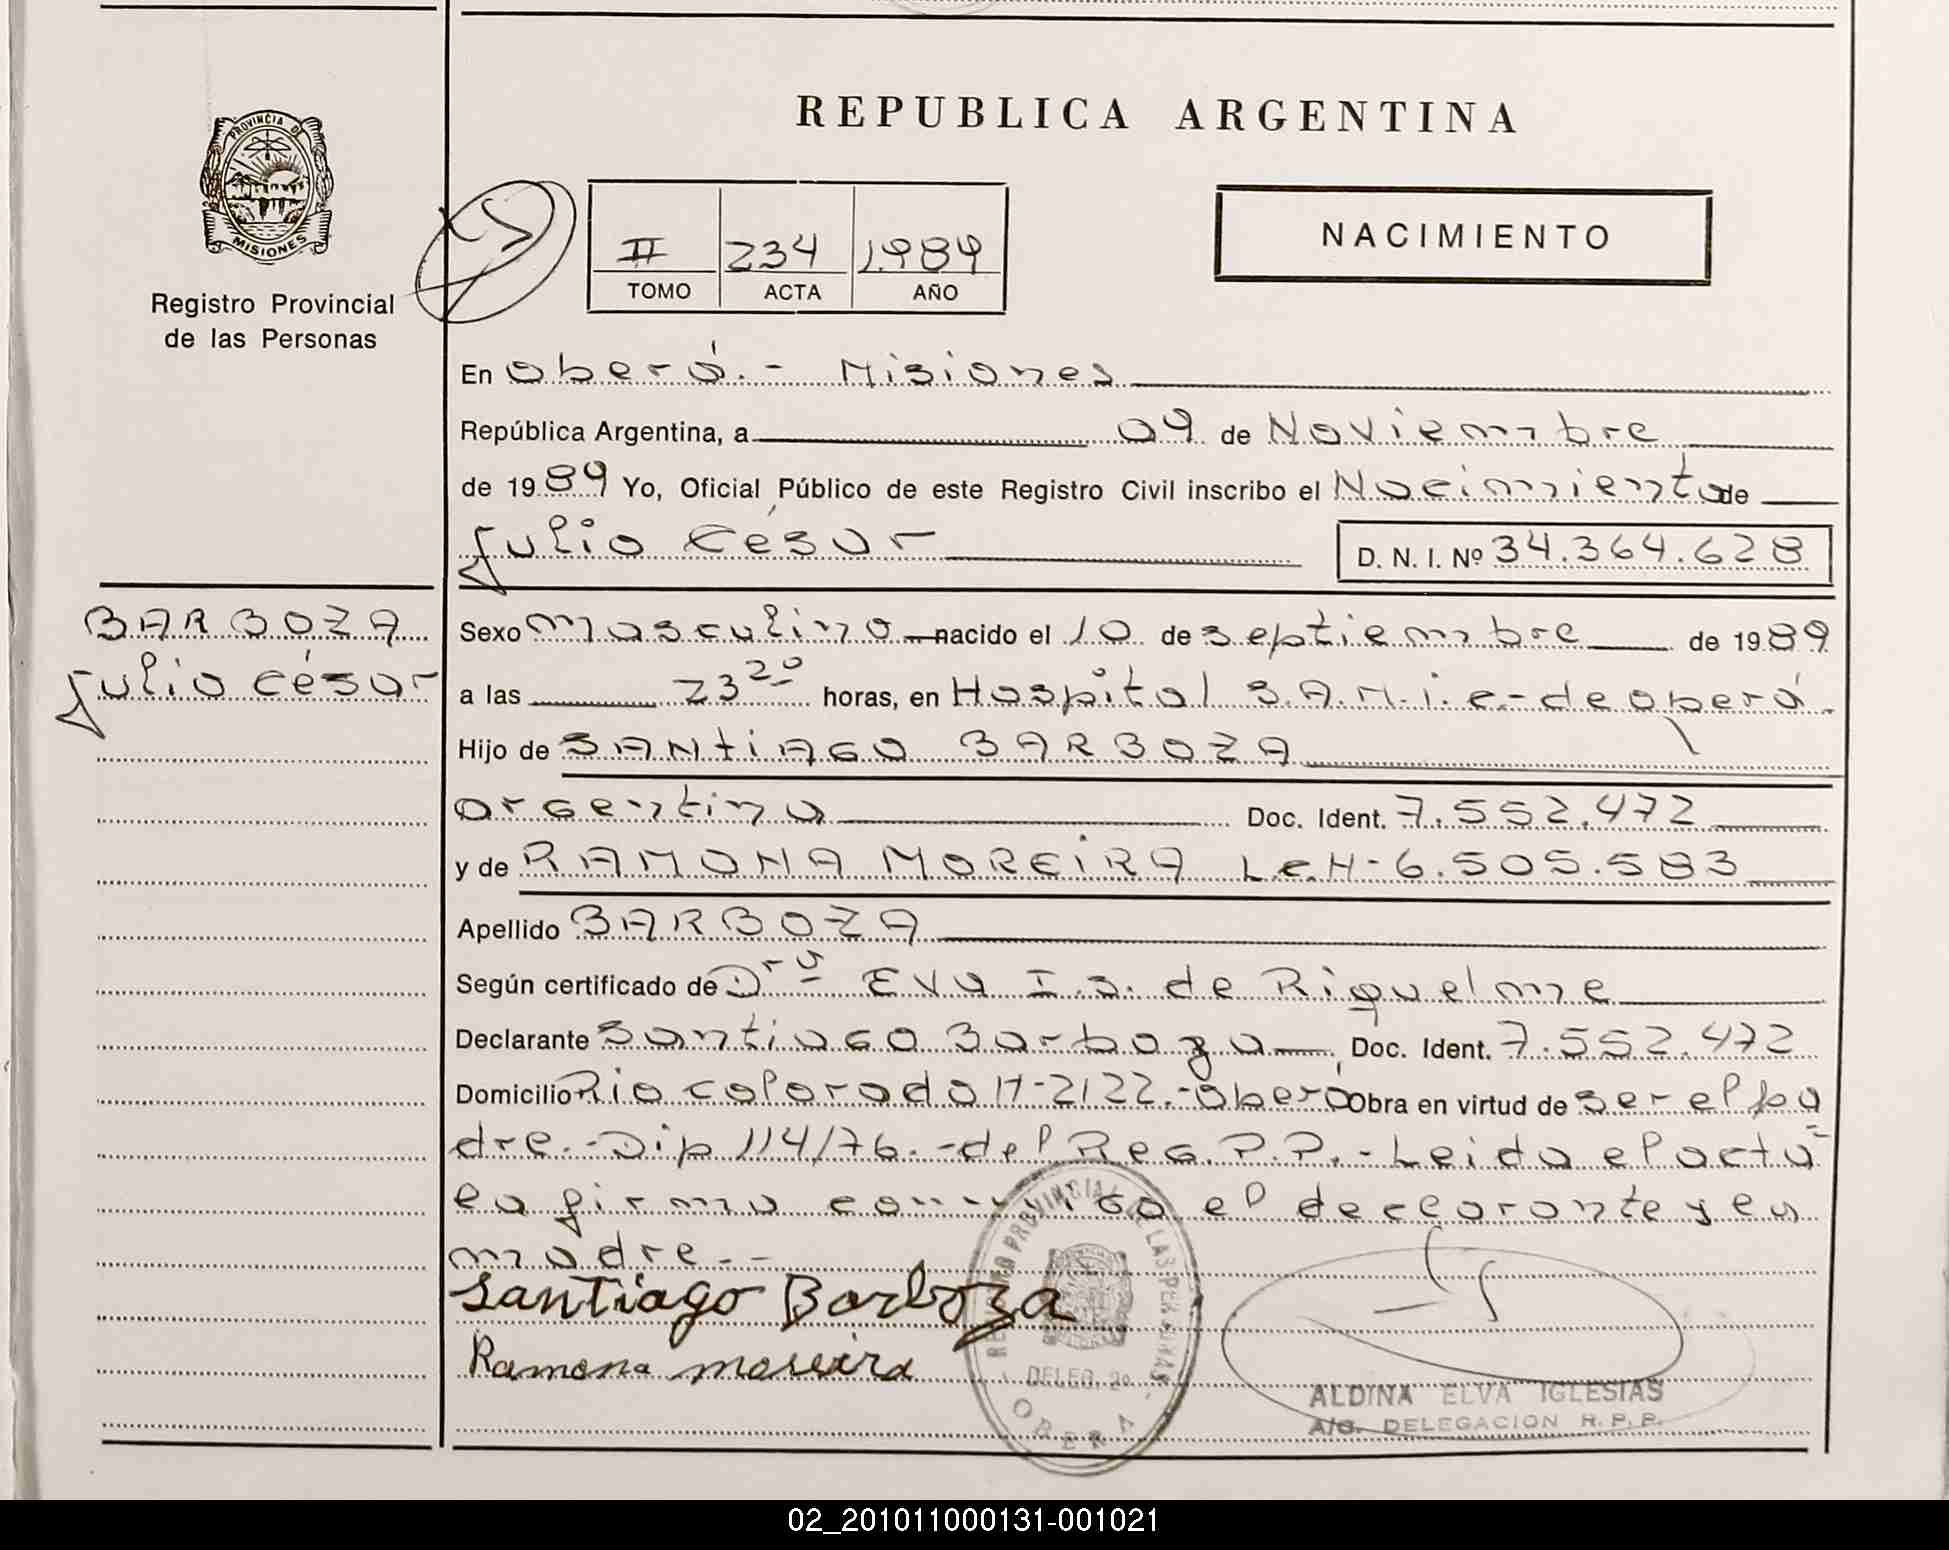 REPUBLICA ARGENTINA
PROVINCIA DE
MISIONES
Registro Provincial
de las Personas
II 234 1989
TOMO ACTA AÑO
NACIMIENTO
En Oberá.- Misiones
República Argentina, a 09 de Noviembre
de 1989 Yo, Oficial Público de este Registro Civil inscribo el Nacimiento de
Julio César D. N. I. Nº 34.364.628
BARBOZA
Julio César
Sexo masculino nacido el 10 de septiembre de 1989
a las 23 20 horas, en Hospital S.A.M.i.c.- de oberá.
Hijo de SANTIAGO BARBOZA
argentina Doc. Ident. 7.552.472
y de RAMONA MOREIRA L.c.N- 6.505.583
Apellido BARBOZA
Según certificado de Dra Eva I.S. de Riquelme
Declarante Santiago Barboza Doc. Ident. 7.552.472
Domicilio Rio colorado N-2122.-oberá Obra en virtud de ser el pa
dre.-Dip 114/76.-del Reg.P.P.-Leida el acta
la firma conmigo el declarante y la
madre.-
Santiago Barboza
Ramona moreira
REGISTRO PROVINCIAL DE LAS PERSONAS
DELEG. 2º
OBERA
ALDINA ELVA IGLESIAS
A/C. DELEGACION R. P. P.
02_201011000131-001021